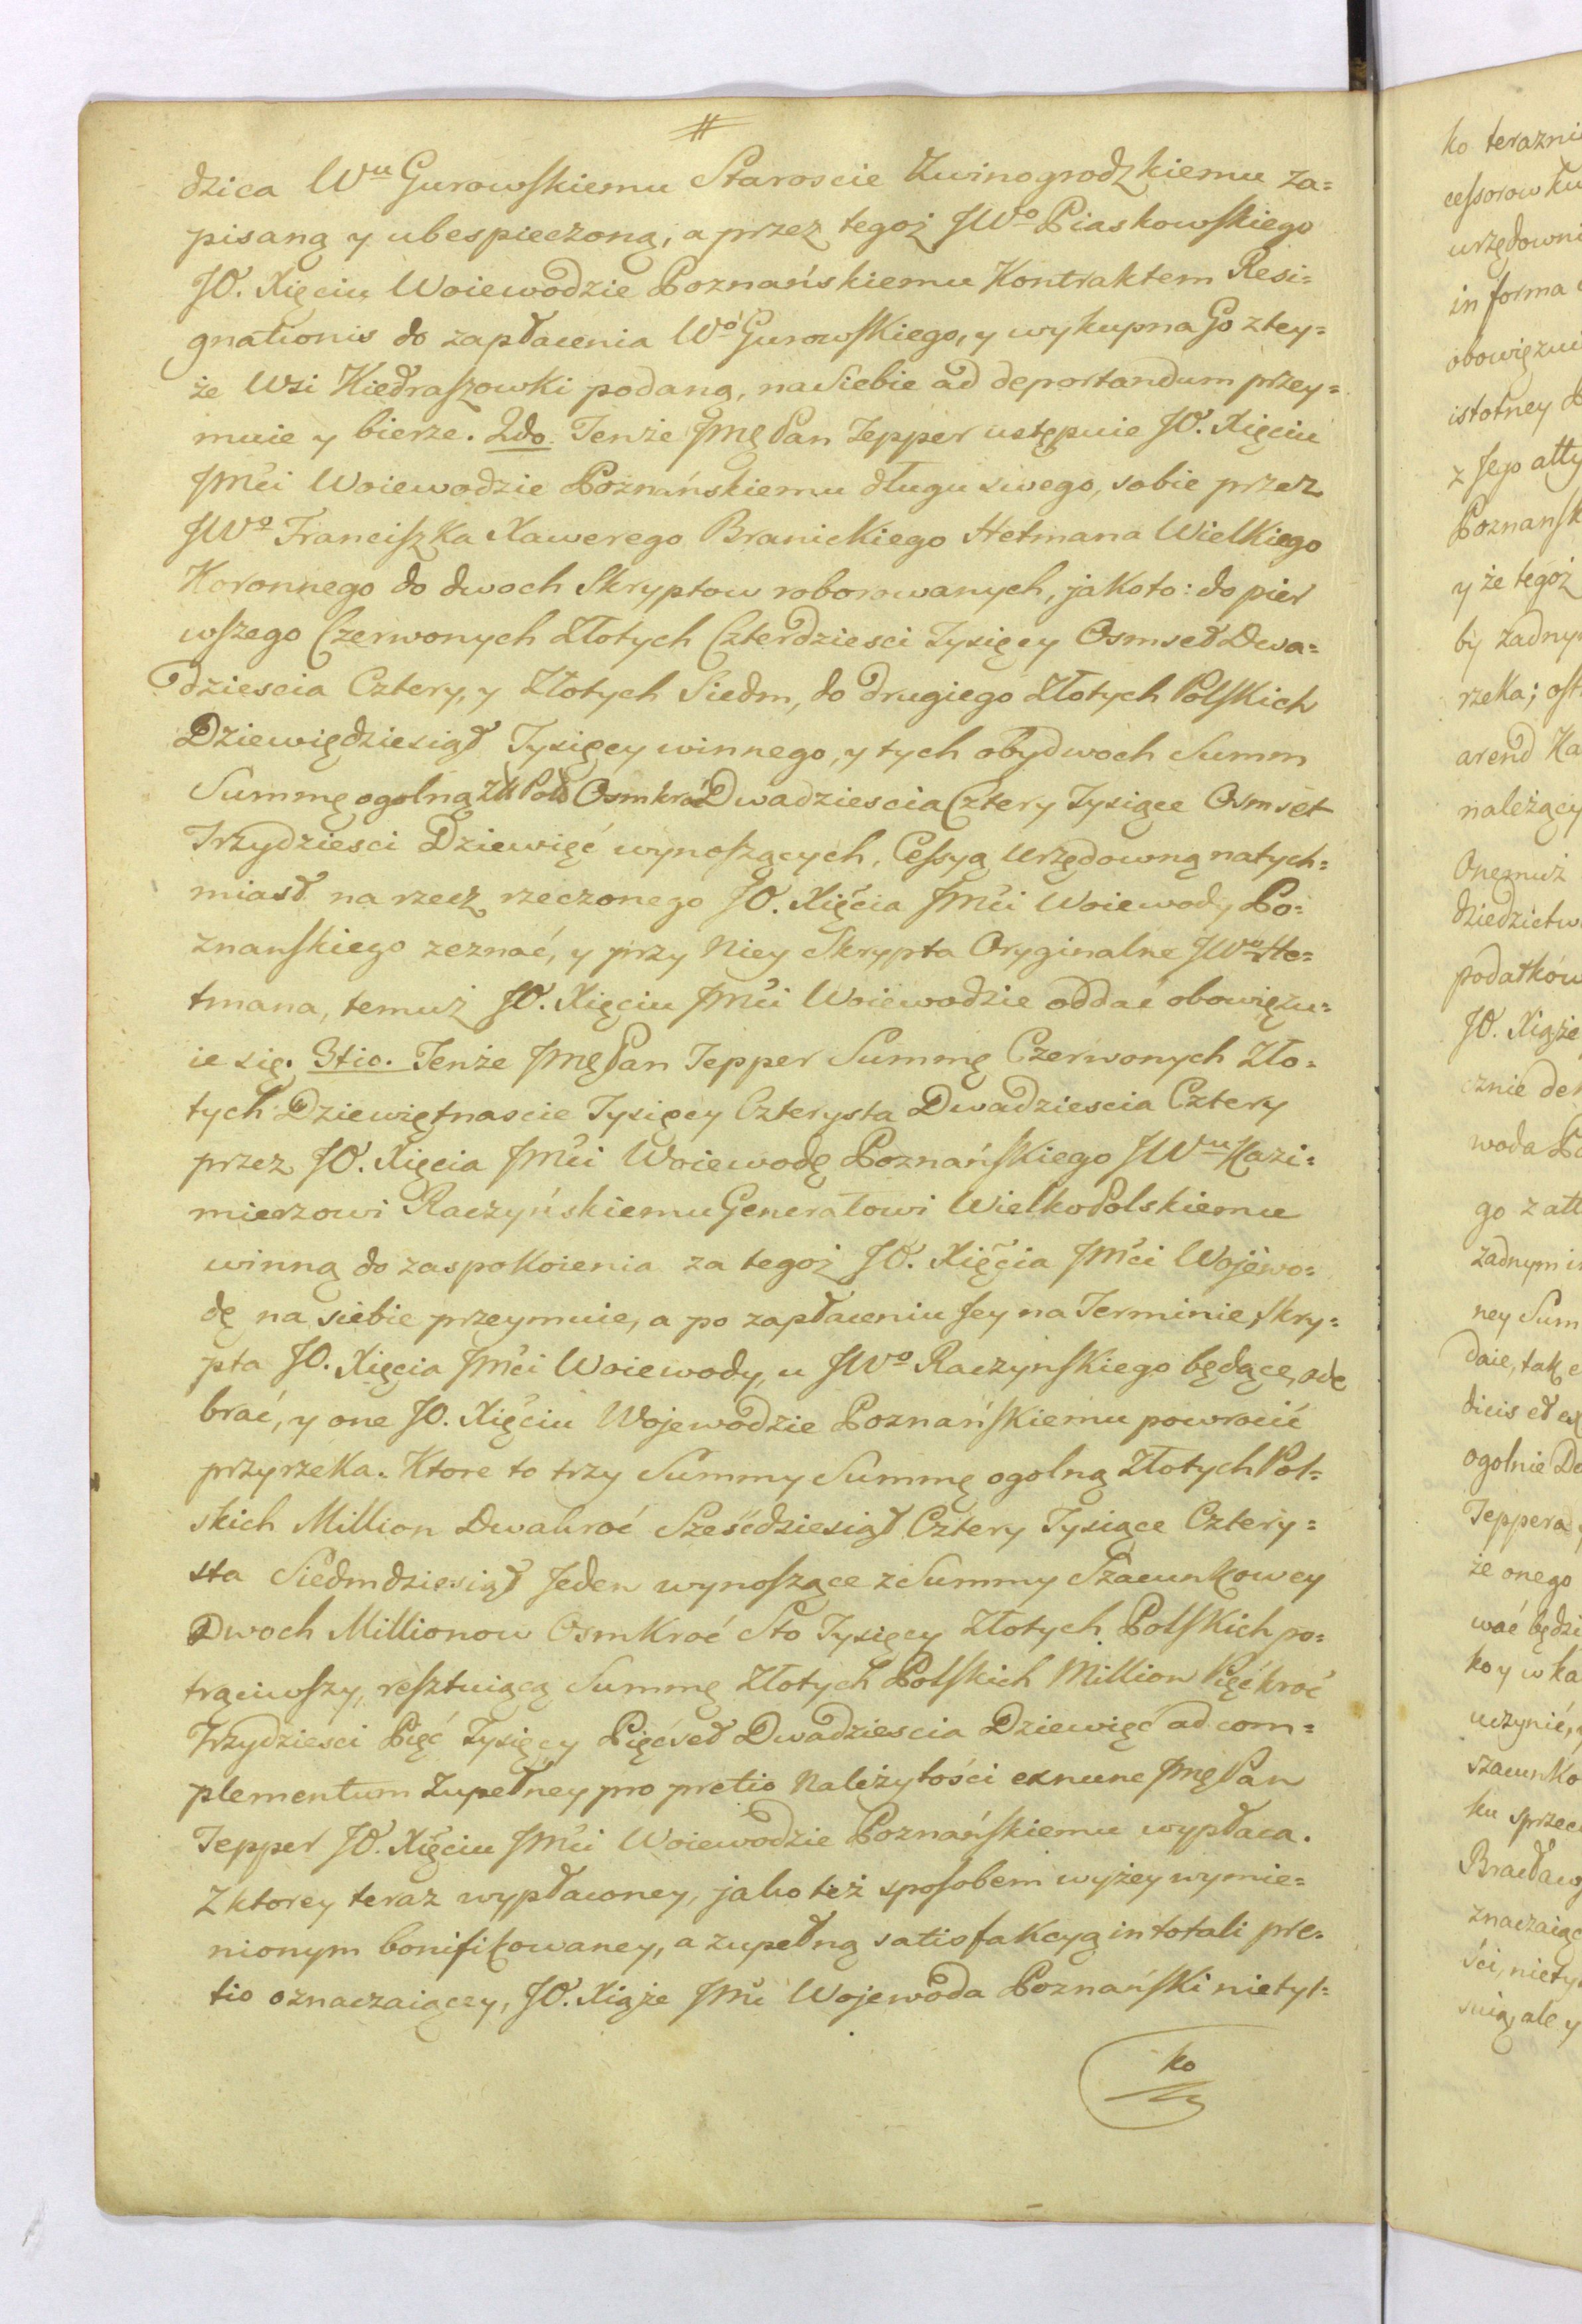 #
dzica Wu Gurowskiemu Staroscie Zwinogrodzkiemu za=
pisaną y ubespieczoną, a przez tegoż JWo Piaskowskiego
JO. Xięciu Woiewodzie Poznańskiemu Kontraktem Resi=
gnationis do zapłacenia Wo Gurowskiego, y wykupna Go ztey=
że Wsi Kiedraszowki podaną, na Siebie ad deportandum przey=
muie y bierze. 2do. Tenże Jmę Pan Tepper ustępuie JO. Xięciu
Jmći Woiewodzie Poznańskiemu długu swego, sobie przez
JWo Franciszka Xawerego Branickiego Hetmana Wielkiego
Koronnego do dwoch Skryptow roborowanych, jakoto: do pier
wszego Czerwonych Złotych Czterdziesci Tysięcy Osmset Dwa=
dziescia Cztery, y Złotych Siedm, do drugiego Złotych Polskich
Dziewiędziesiąt Tysięcy winnego, y tych obydwoch Summ
Summę ogolną Zł Pol Osmkroć Dwadziescia Cztery Tysiące Osmset
Trzydziesci Dziewięć wynoszących, Cessyą Urzędowną natych=
miast na rzecz rzeczonego JO. Xięćia Jmći Woiewody Po=
znanskiego zeznać, y przy Niey Skrypta Oryginalne JWo He=
tmana, temuż JO. Xięciu Jmći Woiewodzie oddać obowięzu=
ie się. 3tio. Tenże Jmę Pan Tepper Summę Czerwonych Zło=
tych Dziewiętnascie Tysięcy Czterysta Dwadziescia Cztery
przez JO. Xięcia Jmći Woiewodę Poznańskiego JWu Kazi=
mierzowi Raczyńskiemu Generałowi WielkoPolskiemu
winną do zaspokoienia za tegoż JO. Xięćia Jmći Wojewo=
dę na siebie przeymuie, a po zapłaceniu Jey na Terminie, skry=
pta JO. Xięcia Jmći Woiewody, u JWo Raczynskiego będące, ode
brać, y one JO. Xięćiu Wojewodzie Poznańskiemu powrocić
przyrzeka. Ktore to trzy Summy Summę ogolną Złotych Pol=
skich Million Dwakroć Sześćdziesiąt Cztery Tysiące Cztery=
sta Siedmdziesiąt Jeden wynoszące z Summy Szacunkowey
Dwoch Millionow Osmkroć Sto Tysięcy Złotych Polskich po=
trąciwszy, resztuiącą Summę Złotych Polskich Million Pięćkroć
Trzydziesci Pięć Tysięcy Pięćset Dwadziescia Dziewięć ad com=
plementum Zupełney pro pretio Należytości exnunc Jmę Pan
Tepper JO. Xięciu Jmći Woiewodzie Poznańskiemu wypłaca.
Z ktorey teraz wypłaconey, jako też sposobem wyżey wymie=
nionym bonifikowaney, a zupełną satisfakcyą in totali pre=
tio oznaczaiączy, JO. Xiąże Jmć Wojewoda Poznański nietyl=
ko
ko terazni
cessorow
urzędowni
in forma
obowięzui
istotney
z Jego atty
Poznansk
y że tegoż
by żadny
rzeka; ost
arend
należący
Onemuż
dziedzictw
podatków
JO. Xiąże
cznie
woda
go z att
żadnym
ney Sum
daie, tak
dicis et
ogolnie
Teppera
że onego
wać będzi
ko y w ka
uczynić,
szacunko
ku sprzec
Bracław
znaczaiąc
ści, niety
ale y